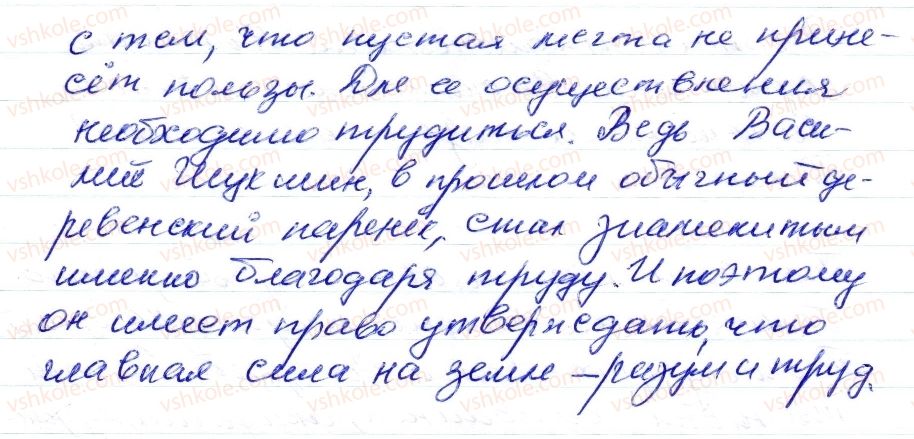 с тем, что пустая мечта не прине-
сёт пользы. Для ее осуществления
необходимо трудиться. Ведь Васи-
лий Шукшин, в прошлом обычный де-
ревенский паренёк, стал знаменитым
именно благодаря труду. И поэтому
он имеет право утверждать, что
главная сила на земле – разум и труд.